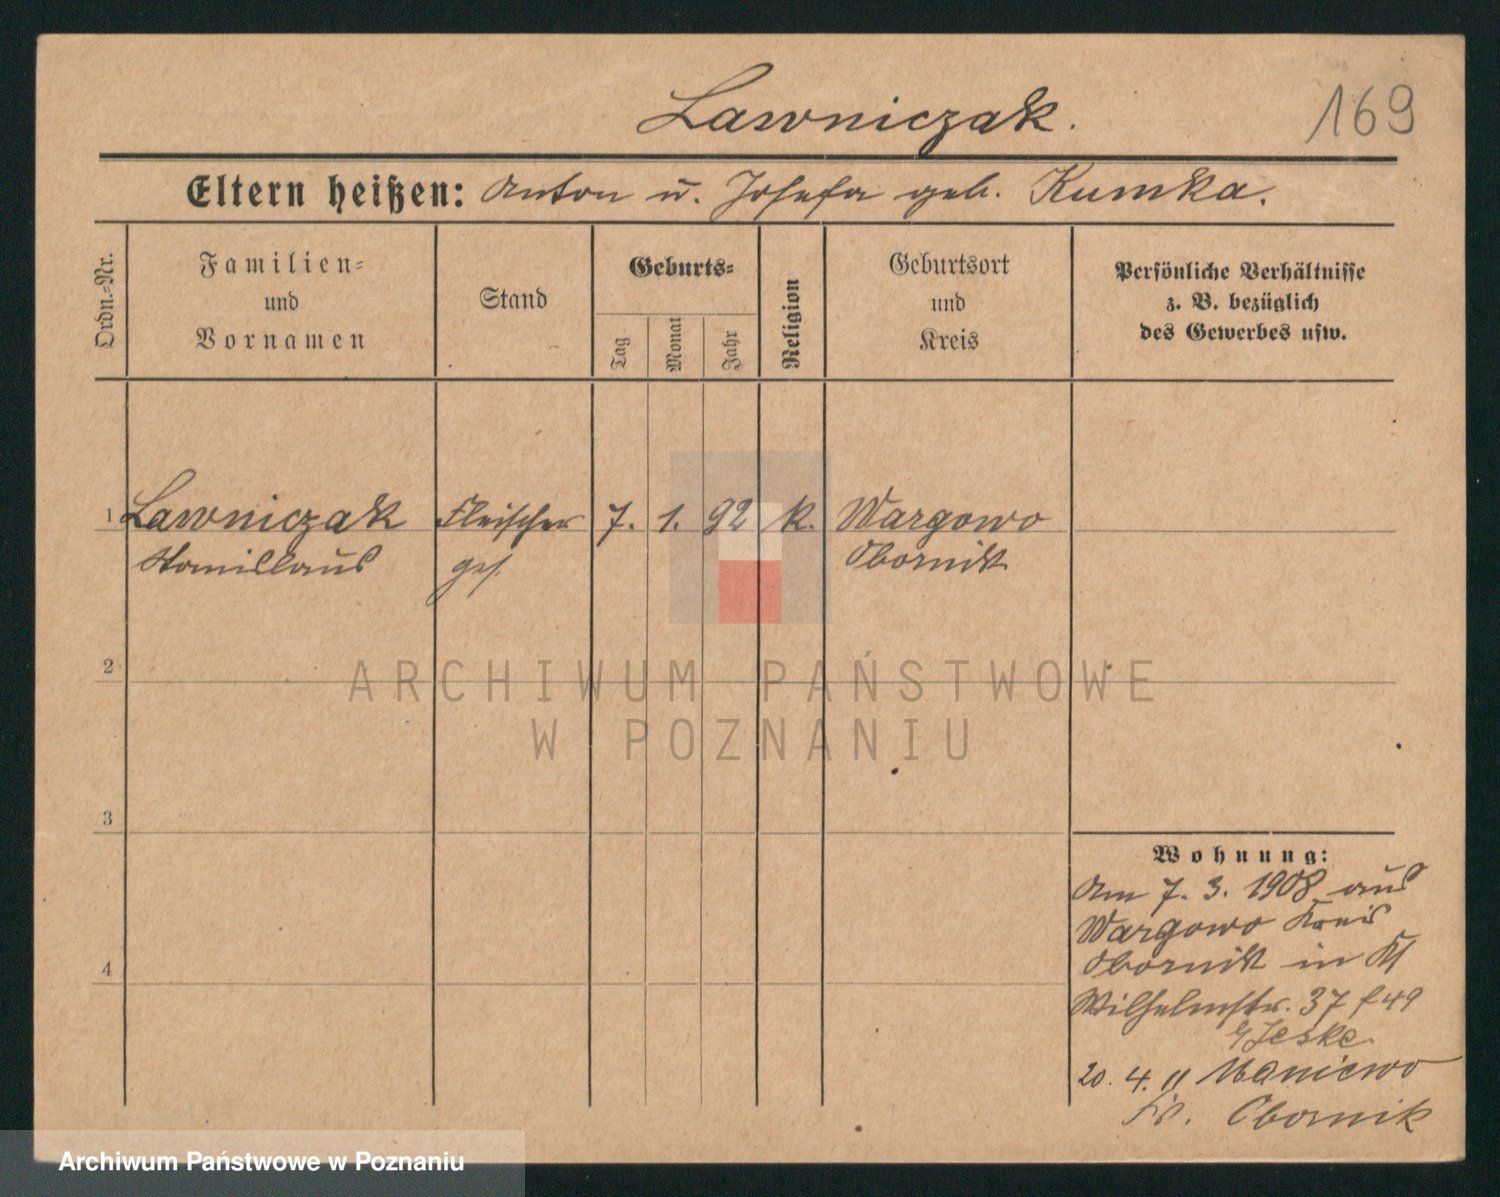 Lawniczak.
169
Eltern heißen: Anton u. Josefa geb. Kumka.
Ordn.-Nr.
Familien-
und
Vornamen
Stand
Geburts-
Tag
Monat
Jahr
Religion
Geburtsort
und
Kreis
Persönliche Verhältnisse
z. B. bezüglich
des Gewerbes usw.
1 Lawniczak Fleischer 7. 1. 92 k. Wargowo
Stanislaus ges. Obornik
2
ARCHIWUM PAŃSTWOWE
W POZNANIU
3
Wohnung:
Am 7. 3. 1908 aus
Wargowo Kreis
Obornik in
Wilhelmstr. 37
Jeske
4
20. 4. 11 Maniewo
Kr. Obornik
Archiwum Państwowe w Poznaniu